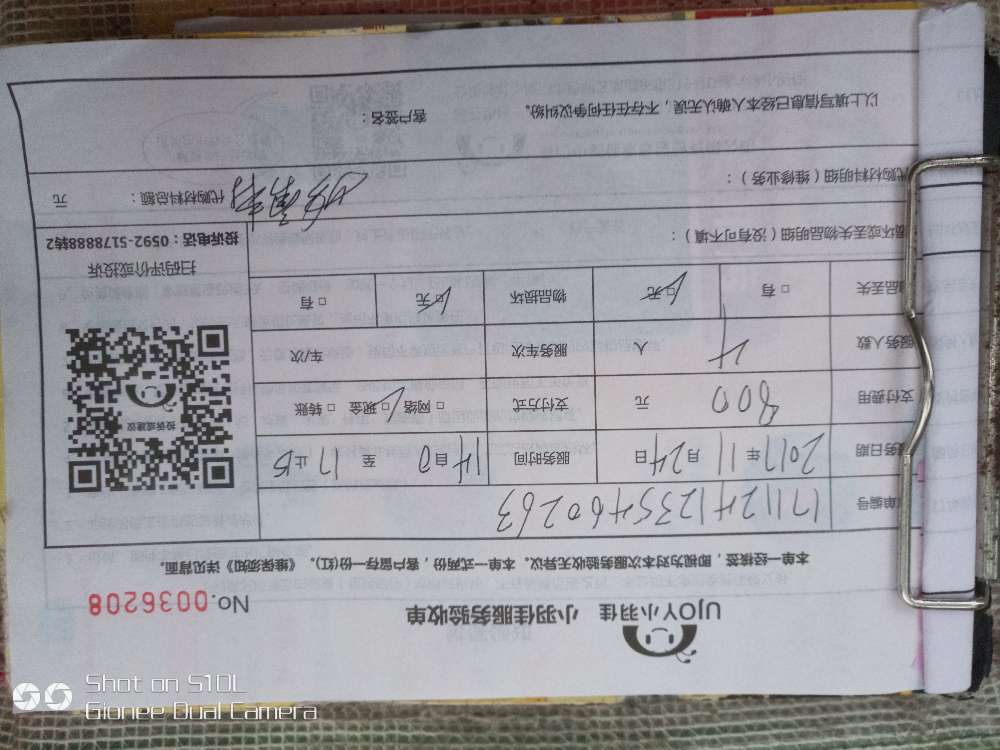 UJOY小羽佳 小羽佳服务验收单
No.0036208
本单一经核签，即视为对本次服务验收无异议。本单一式两份，客户留存一份(红)。《维保须知》详见背面。
单编号 1711241235460263
务日期 2017年11月24日 服务时间 14自0至17止15
支付费用 800元 支付方式 □网络 □现金 □转账
服务人数 4人 服务车次 车/次
品丢失 □有 □无 物品损坏 □无 □有
损坏或丢失物品明细（没有可不填）：
扫码评价或投诉
投诉电话：0592-5178888转2
投诉或建议
代购材料明细（维修业务）：
代购材料总额： 元
以上填写信息已经本人确认无误，不存在任何争议纠纷。 客户签名：
Shot on S10L
Gionee Dual Camera